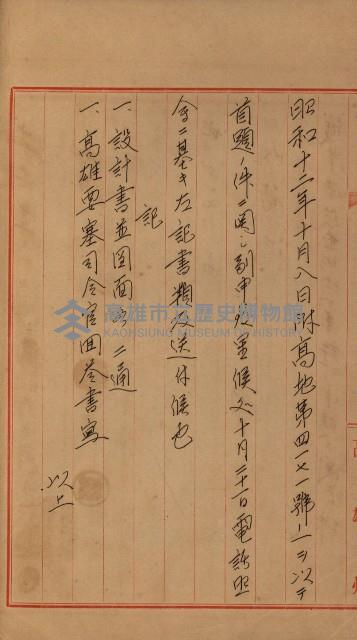 昭和十二年十月八日附高地第四一七一號ノ一ヲ以テ
首題ノ件ニ関シ副申致置候処十月二十一日電話照
会ニ基キ左記書類及送付候也
記
一、設計書並図面写 二通
一、高雄要塞司令官回答書写
以上
高雄市立歷史博物館
KAOHSIUNG MUSEUM OF HISTORY